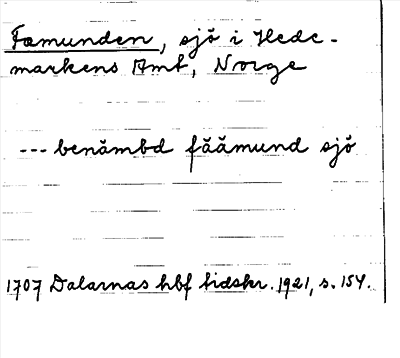 Fæmunden, sjö i Hede-
markens Amt, Norge
--- benämbd fäämund sjö
1707 Dalarnas hbf tidskr. 1921, s. 154.